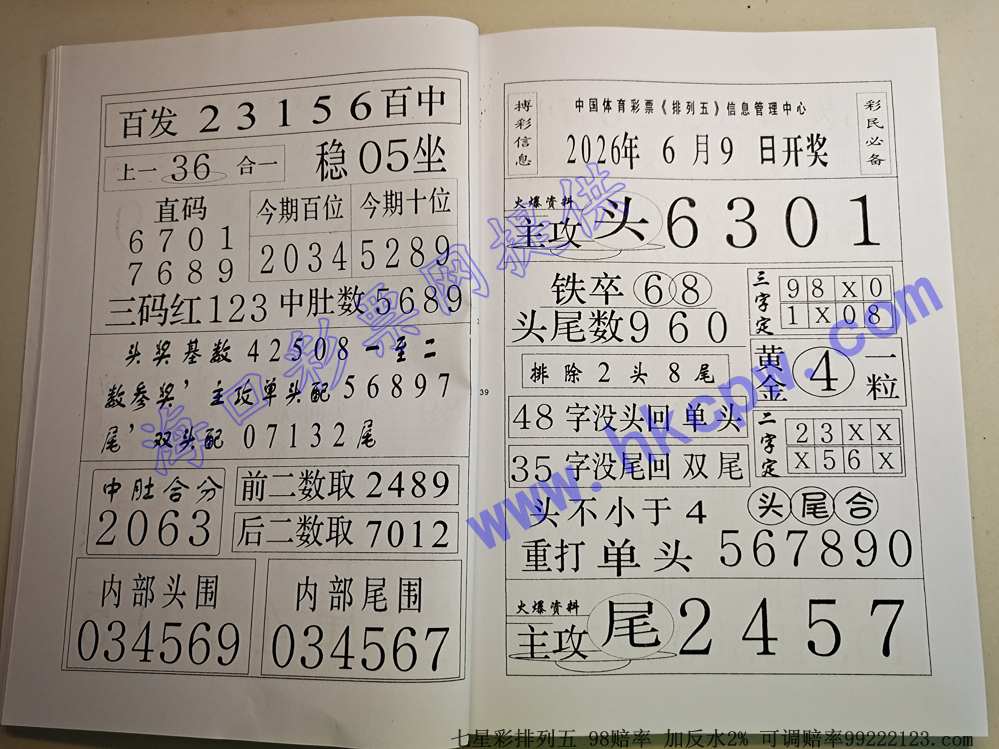 百发 23156 百中
上一 36 合一 稳 05 坐
直码
6701
7689
今期百位 今期十位
2034 5289
三码红 123 中肚数 5689
头奖基数 42508 一至二
数参奖’主攻单头配 56897
尾’双头配 07132 尾
中肚合分
2063
前二数取 2489
后二数取 7012
内部头围
034569
内部尾围
034567
39
搏彩信息
中国体育彩票《排列五》信息管理中心
2026年 6月9 日开奖
彩民必备
火爆资料
主攻 头 6301
铁卒 68
头尾数 960
三字定
98X0
1X08
排除 2 头 8 尾
黄金 4 一粒
48 字没头回 单头
35 字没尾回 双尾
二字定
23XX
X56X
头不小于 4 头尾合
重打 单头 567890
火爆资料
主攻 尾 2457
海口彩票网提供
www.hkcpw.com
七星彩排列五 98赔率 加反水2% 可调赔率99222123.com